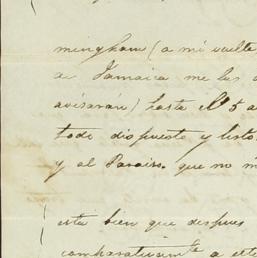 mingham (a mi vuelta
de Jamaica me las
avisarán) hasta el 5 a
todo dispuesto y listo
y al Paraiso. que no m
está bien que despues
comparativamte a este